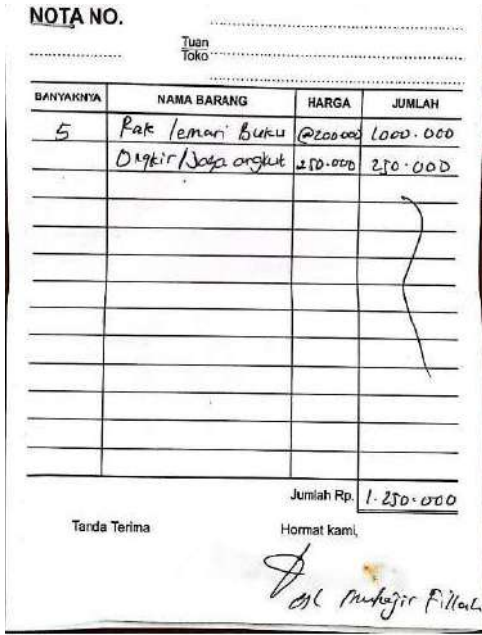 NOTA NO.
Tuan
Toko
BANYAKNYA NAMA BARANG HARGA JUMLAH
5 Rak lemari Buku @200.000 1.000.000
Ongkir/Jasa angkut 250.000 250.000
Jumlah Rp. 1.250.000
Tanda Terima Hormat kami,
Muhajir Fillah